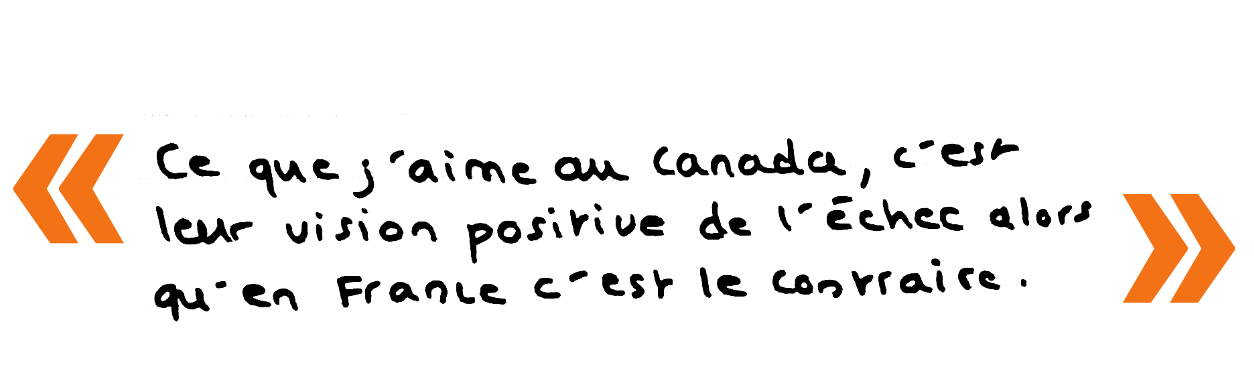 « Ce que j'aime au Canada, c'est
leur vision positive de l'échec alors
qu'en France c'est le contraire. »